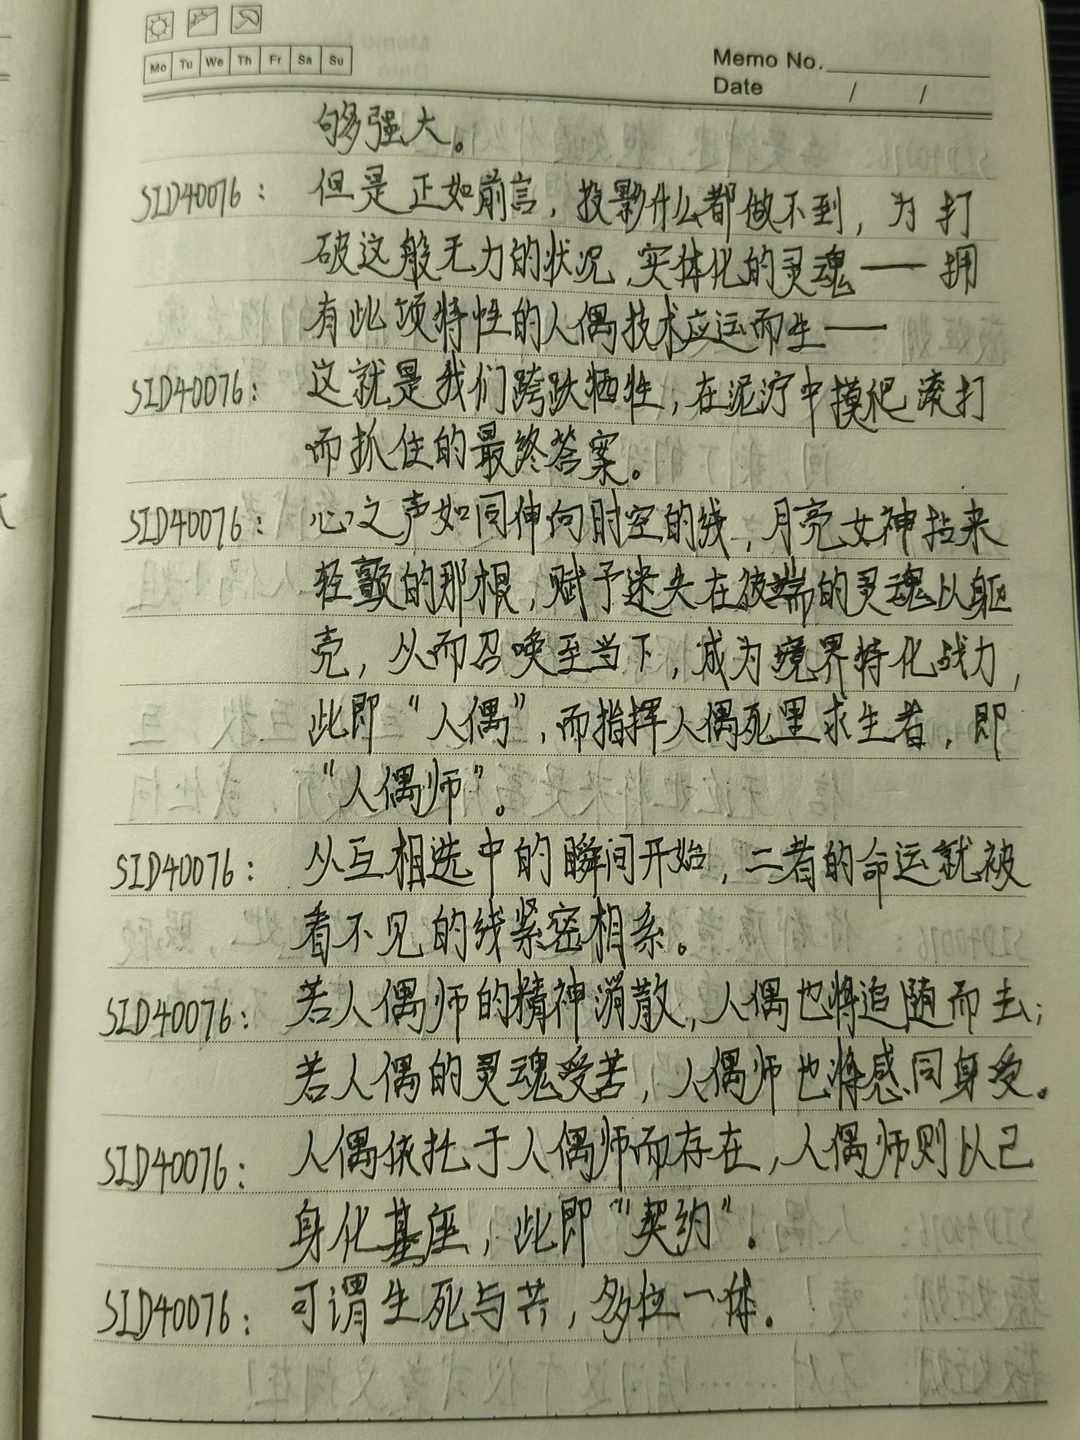 Mo Tu We Th Fr Sa Su
Memo No.
Date / /
够强大。
SID40076: 但是正如前言,投影什么都做不到,为打
破这般无力的状况,实体化的灵魂——拥
有此项特性的人偶技术应运而生——
SID40076: 这就是我们跨跃牺牲,在泥泞中摸爬滚打
而抓住的最终答案。
SID40076: 心之声如同伸向时空的线,月亮女神拈来
轻颤的那根,赋予迷失在彼端的灵魂以躯
壳,从而召唤至当下,成为境界特化战力,
此即“人偶”,而指挥人偶死里求生者,即
“人偶师”。
SID40076: 从互相选中的瞬间开始,二者的命运就被
看不见的线紧密相系。
SID40076: 若人偶师的精神消散,人偶也将追随而去;
若人偶的灵魂受苦,人偶师也将感同身受。
SID40076: 人偶依托于人偶师而存在,人偶师则以己
身化基座,此即“契约”。
SID40076: 可谓生死与共,多位一体。